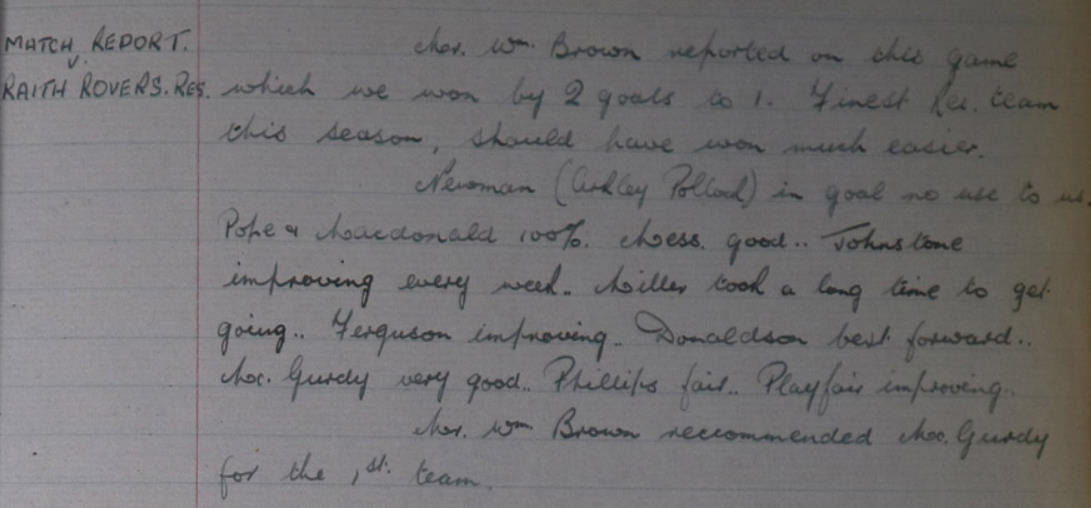 MATCH REPORT.
v.
RAITH ROVERS. RES.
Mr. Wm. Brown reported on this game
which we won by 2 goals to 1. Finest Res. team
this season, should have won much easier.
Newman (Arkley Pollock) in goal no use to us.
Pope & Macdonald 100%. Mess. good.. Johnstone
improving every week.. Miller took a long time to get
going.. Ferguson improving.. Donaldson best forward..
Mc. Gurdy very good.. Phillips fair.. Playfair improving.
Mr. Wm. Brown reccommended Mc. Gurdy
for the 1st. team.